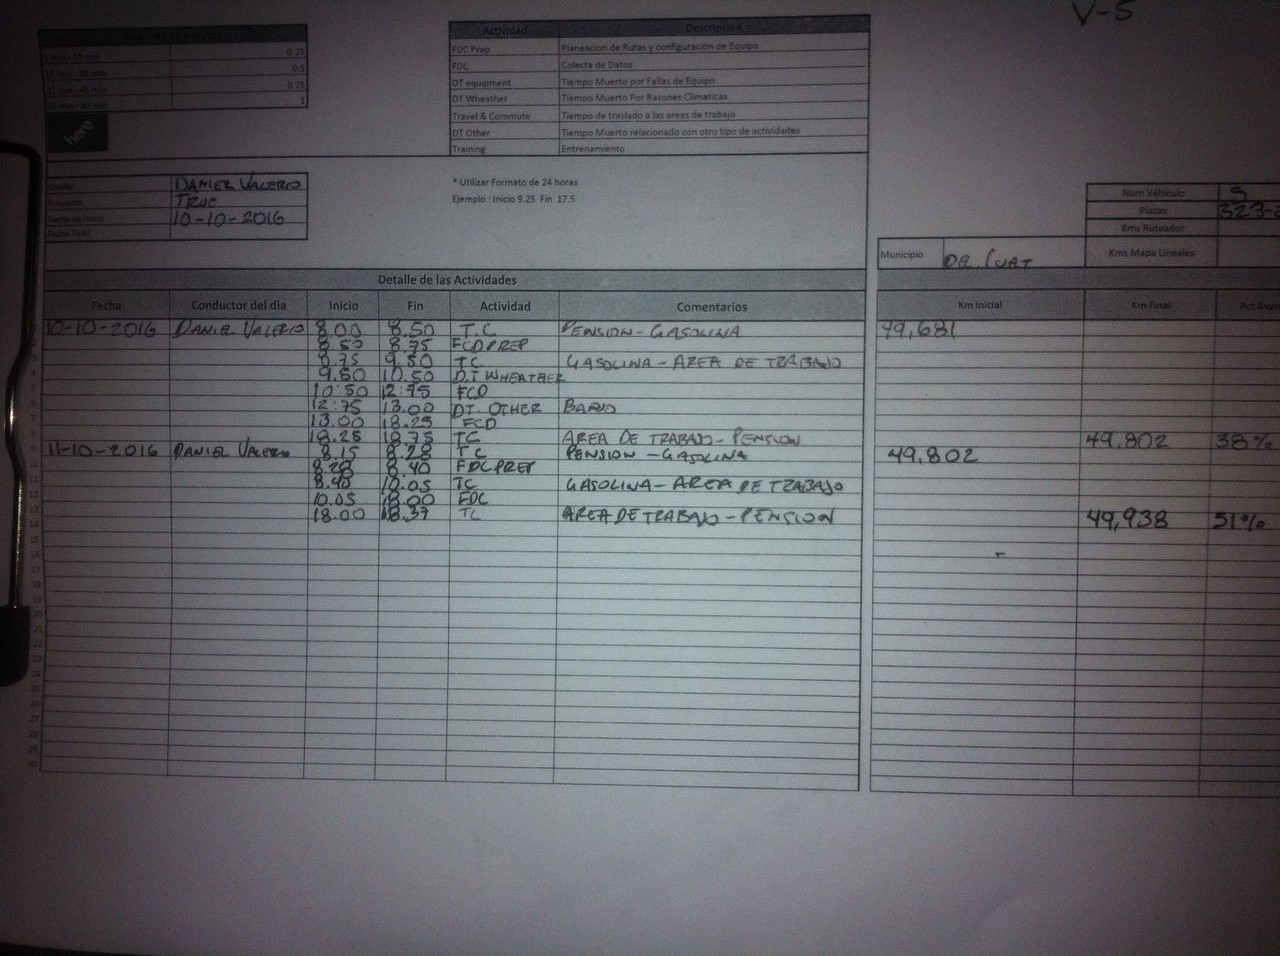 V-5
Actividad Descripcion
5 min - 15 min 0.25
16 min - 30 min 0.5
31 min - 45 min 0.75
46 min - 60 min 1
FDC Prep Planeacion de Rutas y configuración de Equipo
FDC Colecta de Datos
DT equipment Tiempo Muerto por Fallas de Equipo
DT Wheather Tiempo Muerto Por Razones Climaticas
Travel & Commute Tiempo de traslado a las areas de trabajo
DT Other Tiempo Muerto relacionado con otro tipo de actividades
Training Entrenamiento
here
Chofer DANIEL VALERIO
Proyecto TRUC
Fecha de Inicio 10-10-2016
Fecha Final
* Utilizar Formato de 24 horas
Ejemplo : Inicio 9.25 Fin 17.5
Num Vehiculo 5
Placas 327-
Kms Ruteador
Kms Mapa Lineales
Municipio
Detalle de las Actividades
Fecha Conductor del dia Inicio Fin Actividad Comentarios Km Inicial Km Final Pct Ava
10-10-2016 DANIEL VALERIO 8.00 8.50 T.C PENSION-GASOLINA 49,681
8.50 8.75 FCDPREP
8.75 9.50 TC GASOLINA-AREA DE TRABAJO
9.50 10.50 D.T WHEATHER
10:50 12:75 FCD
12:75 13.00 DT. OTHER BAÑO
13.00 18.25 FCD
18.25 18.75 TC AREA DE TRABAJO-PENSION 49,802 38%
11-10-2016 DANIEL VALERIO 8.15 8.28 TC PENSION-GASOLINA 49,802
8.28 8.40 FDCPREP
8.40 10.05 TC GASOLINA-AREA DE TRABAJO
10.05 18.00 FDC
18.00 18.37 TC AREA DE TRABAJO-PENSION 49,938 51%